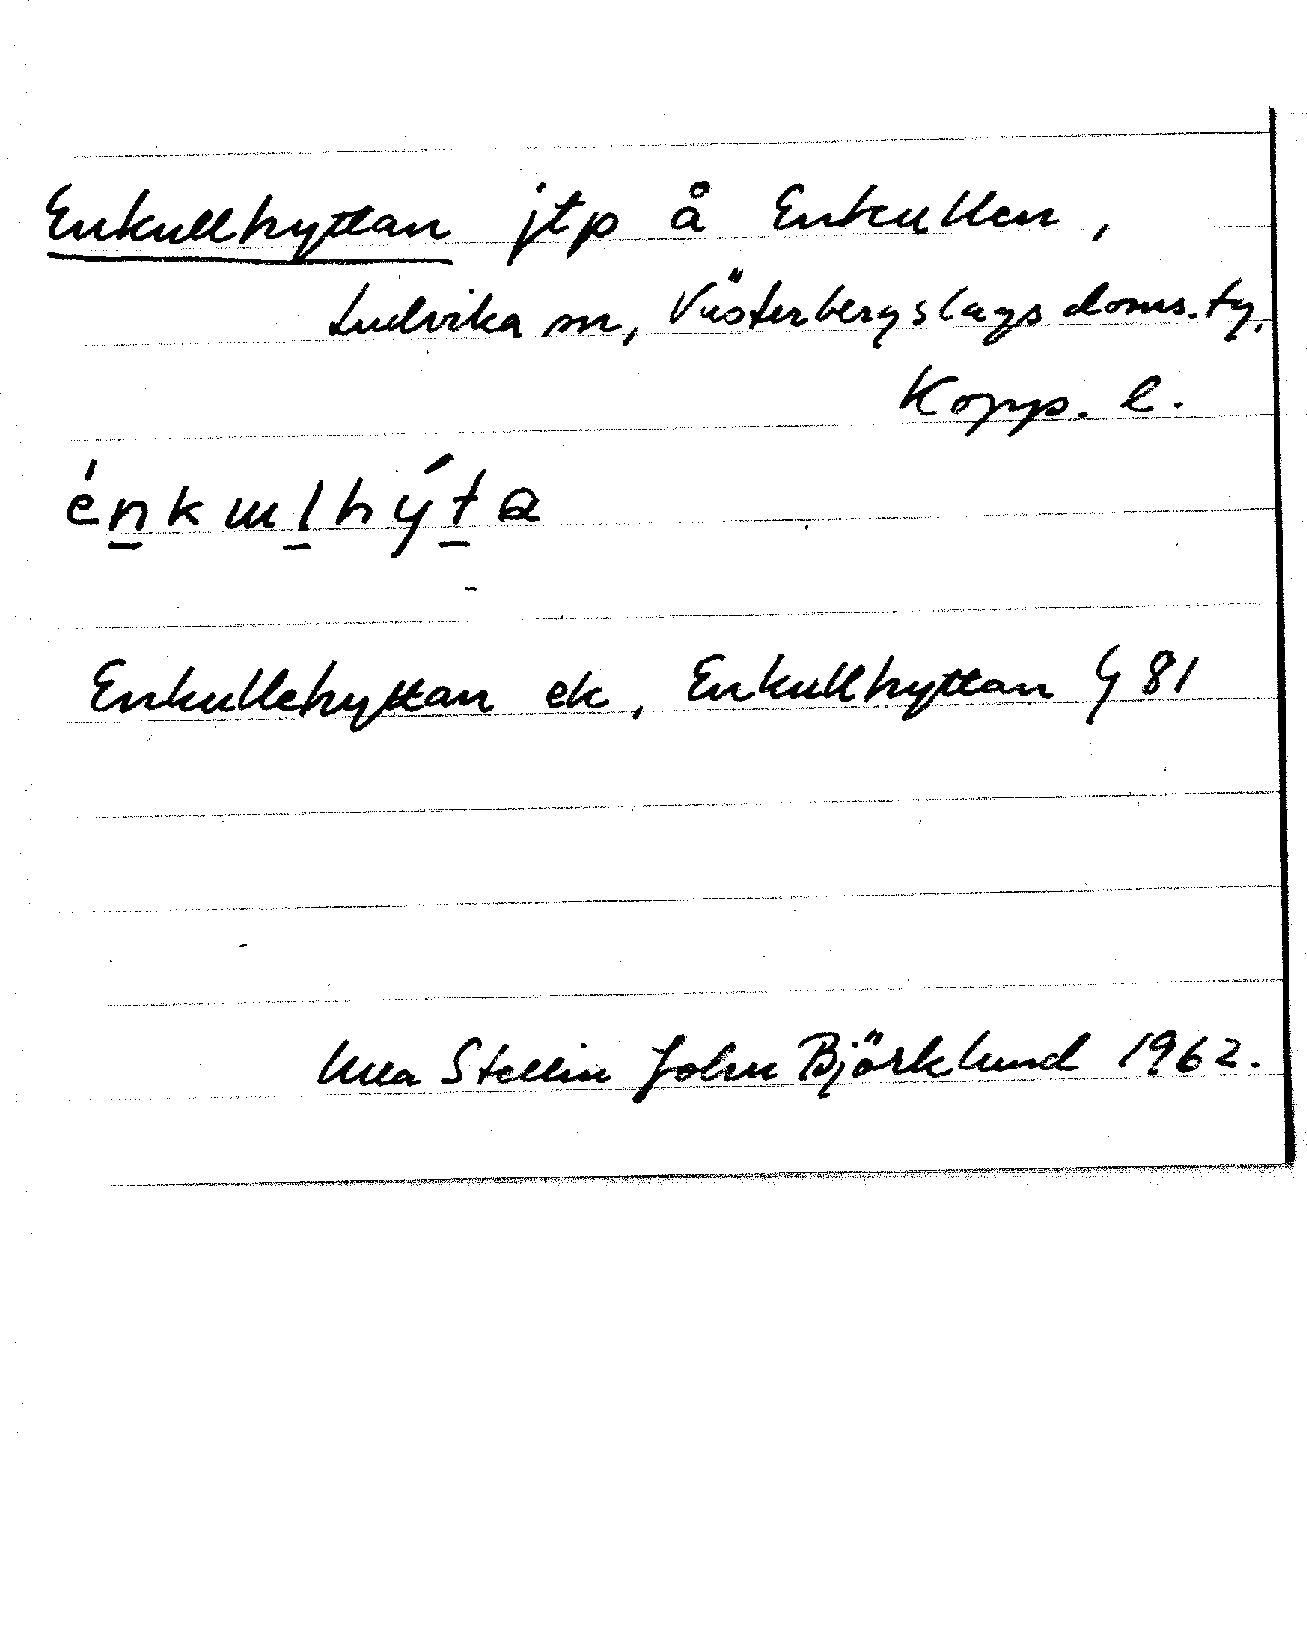 Enkullhyttan jtp å Enkullen,
Ludvika sn, Västerbergslags doms. tg,
Kopp. l.
énkɯlhýta
Enkullehyttan ek, Enkullhyttan G 81
Ulla Stellin John Björklund 1962.